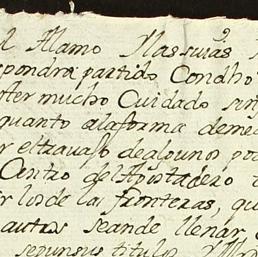 l Alamo Nassuias
pondra partido Condho
ster mucho Cuidado sin
quanto alaforma deme
r eltravaso dealgunos po
Centro del Apostadero
ir losde las fronteras, qu
autos seande llenar
sepunsus titulos